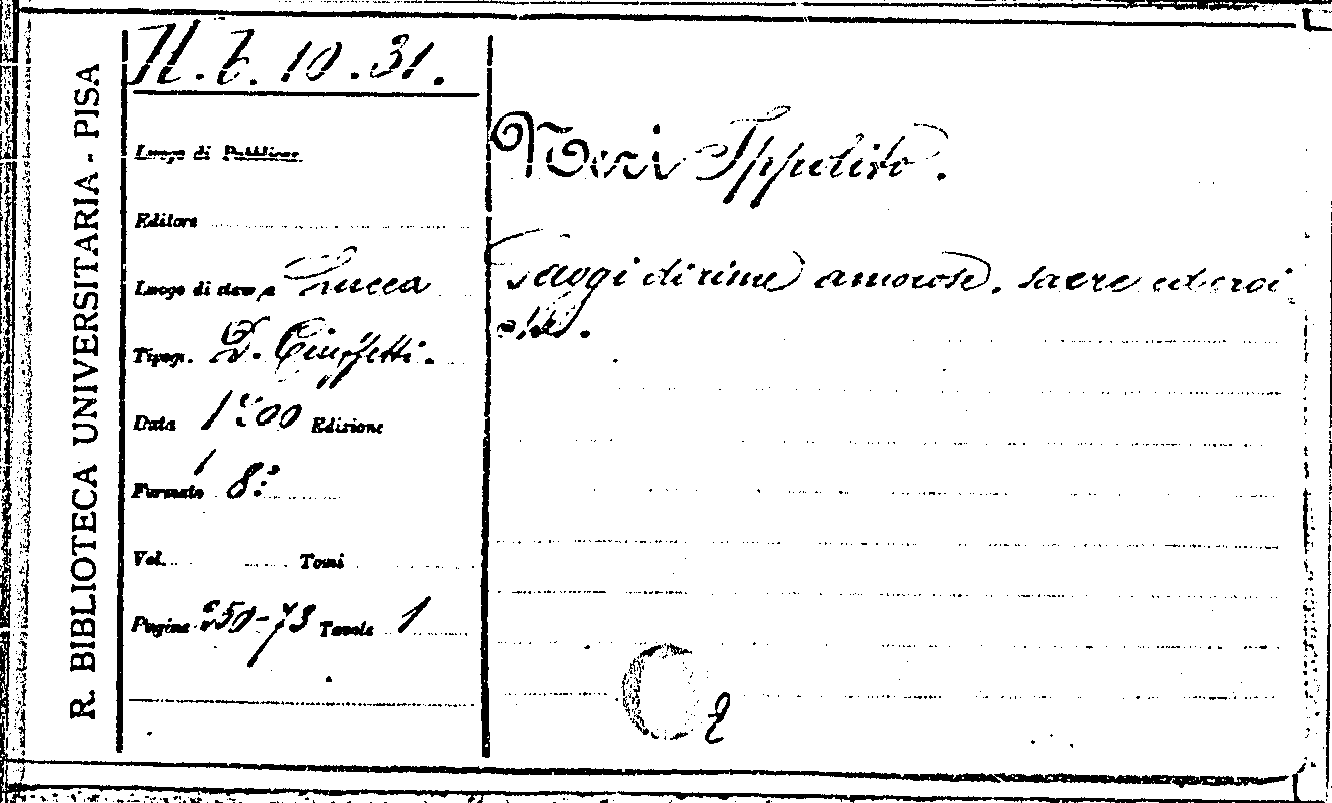 R. BIBLIOTECA UNIVERSITARIA - PISA
H. b. 10. 31.
Luogo di Pubblicaz.
Editore
Luogo di stampa Lucca
Tipogr. D. Ciuffetti.
Data 1700 Edizione
Formato 8°
Vol. Tomi
Pagine 250-73 Tavole 1
Neri Ippolito.
Saggi di rime amorose, sacre ed eroi
che.